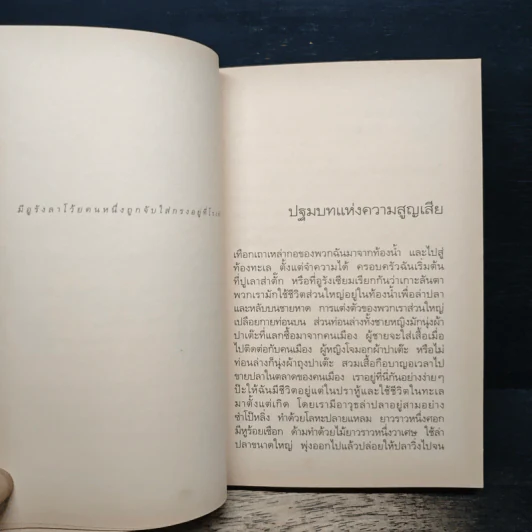 มีอูรังลาโว้ยคนหนึ่งถูกจับใส่กรงอยู่ที่
ปฐมบทแห่งความสูญเสีย
เทือกเถาเหล่ากอของพวกฉันมาจากท้องน้ำ และไปสู่
ท้องทะเล ตั้งแต่จำความได้ ครอบครัวฉันเริ่มต้น
ที่ปูเลาสำดั๊ก หรือที่อูรังเซียมเรียกกันว่าเกาะลันตา
พวกเรามักใช้ชีวิตส่วนใหญ่อยู่ในท้องน้ำเพื่อล่าปลา
และหลับบนชายหาด การแต่งตัวของพวกเราส่วนใหญ่
เปลือยกายท่อนบน ส่วนท่อนล่างทั้งชายหญิงมักนุ่งผ้า
ปาเต๊ะที่แลกซื้อมาจากคนเมือง ผู้ชายจะใส่เสื้อเมื่อ
ไปติดต่อกับคนเมือง ผู้หญิงใจมอกผ้าปาเต๊ะ หรือไม่
ท่อนล่างก็นุ่งผ้าถุงปาเต๊ะ สวมเสื้อกือบาญอเวลาไป
ขายปลาในตลาดของคนเมือง เราอยู่ที่นี่กันอย่างง่ายๆ
ป๊ะให้ฉันมีชีวิตอยู่แต่ในปราหู้และใช้ชีวิตในทะเล
มาตั้งแต่เกิด โดยเรามีอาวุธล่าปลาอยู่สามอย่าง
ซำโป๊หลิ่ง ทำด้วยโลหะปลายแหลม ยาวราวหนึ่งศอก
มีหูร้อยเชือก ด้ามทำด้วยไม้ยาวราวหนึ่งวาเศษ ใช้ล่า
ปลาขนาดใหญ่ พุ่งออกไปแล้วปล่อยให้ปลาวิ่งไปจน